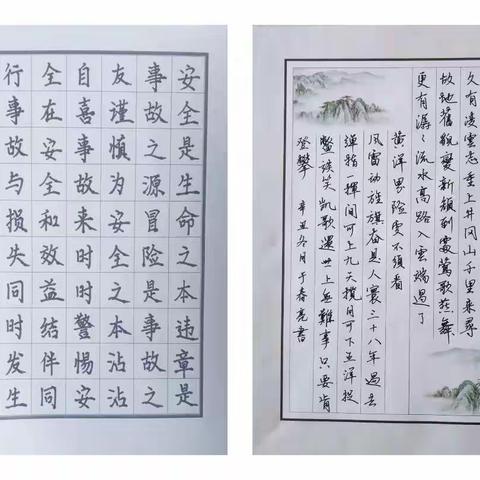 安全是生命之本违章是
事故之源冒险是事故之
友谨慎为安全之本沾沾
自喜事故来时时警惕安
全在安全和效益结伴同
行事故与损失同时发生
久有凌雲志重上井冈山千里來尋
故地舊貌變新颜到處莺歌燕舞
更有潺々流水高路入雲端過了
黄洋界险處不须看
風雷动旌旗奋是人寰三十八年過去
弹指一挥间可上九天揽月可下五洋捉
鳖谈笑凯歌還世上無難事只要肯
登攀 辛丑冬月于春亮書